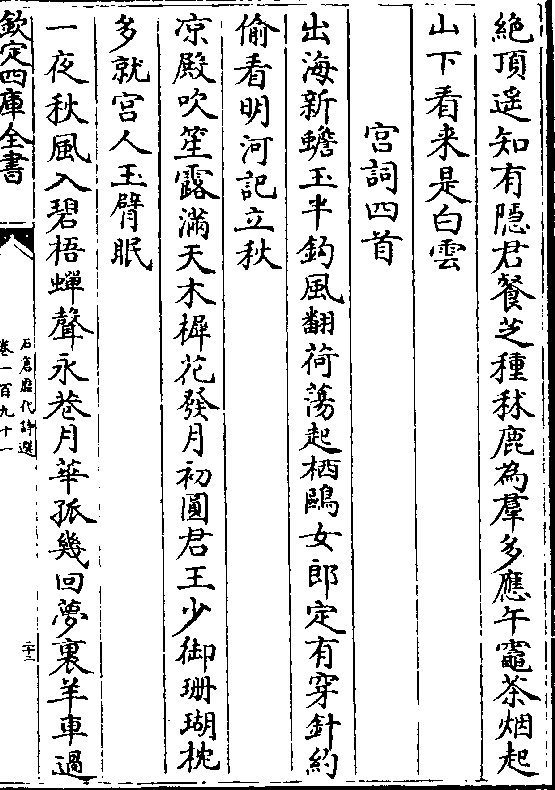 絶頂遥知有隠君餐芝種秫鹿為羣多應午竈茶烟起
山下看来是白雲
宮詞四首
出海新蟾玉半鈎風翻荷蕩起栖鷗女郎定有穿針約
偷看明河記立秋
凉殿吹笙露滿天木樨花發月初圓君王少御珊瑚枕
多就宮人玉臂眠
一夜秋風入碧梧蟬聲永巷月華孤幾回夢裏羊車過
欽定四庫全書
石倉歷代詩選
卷一百九十一
二十三